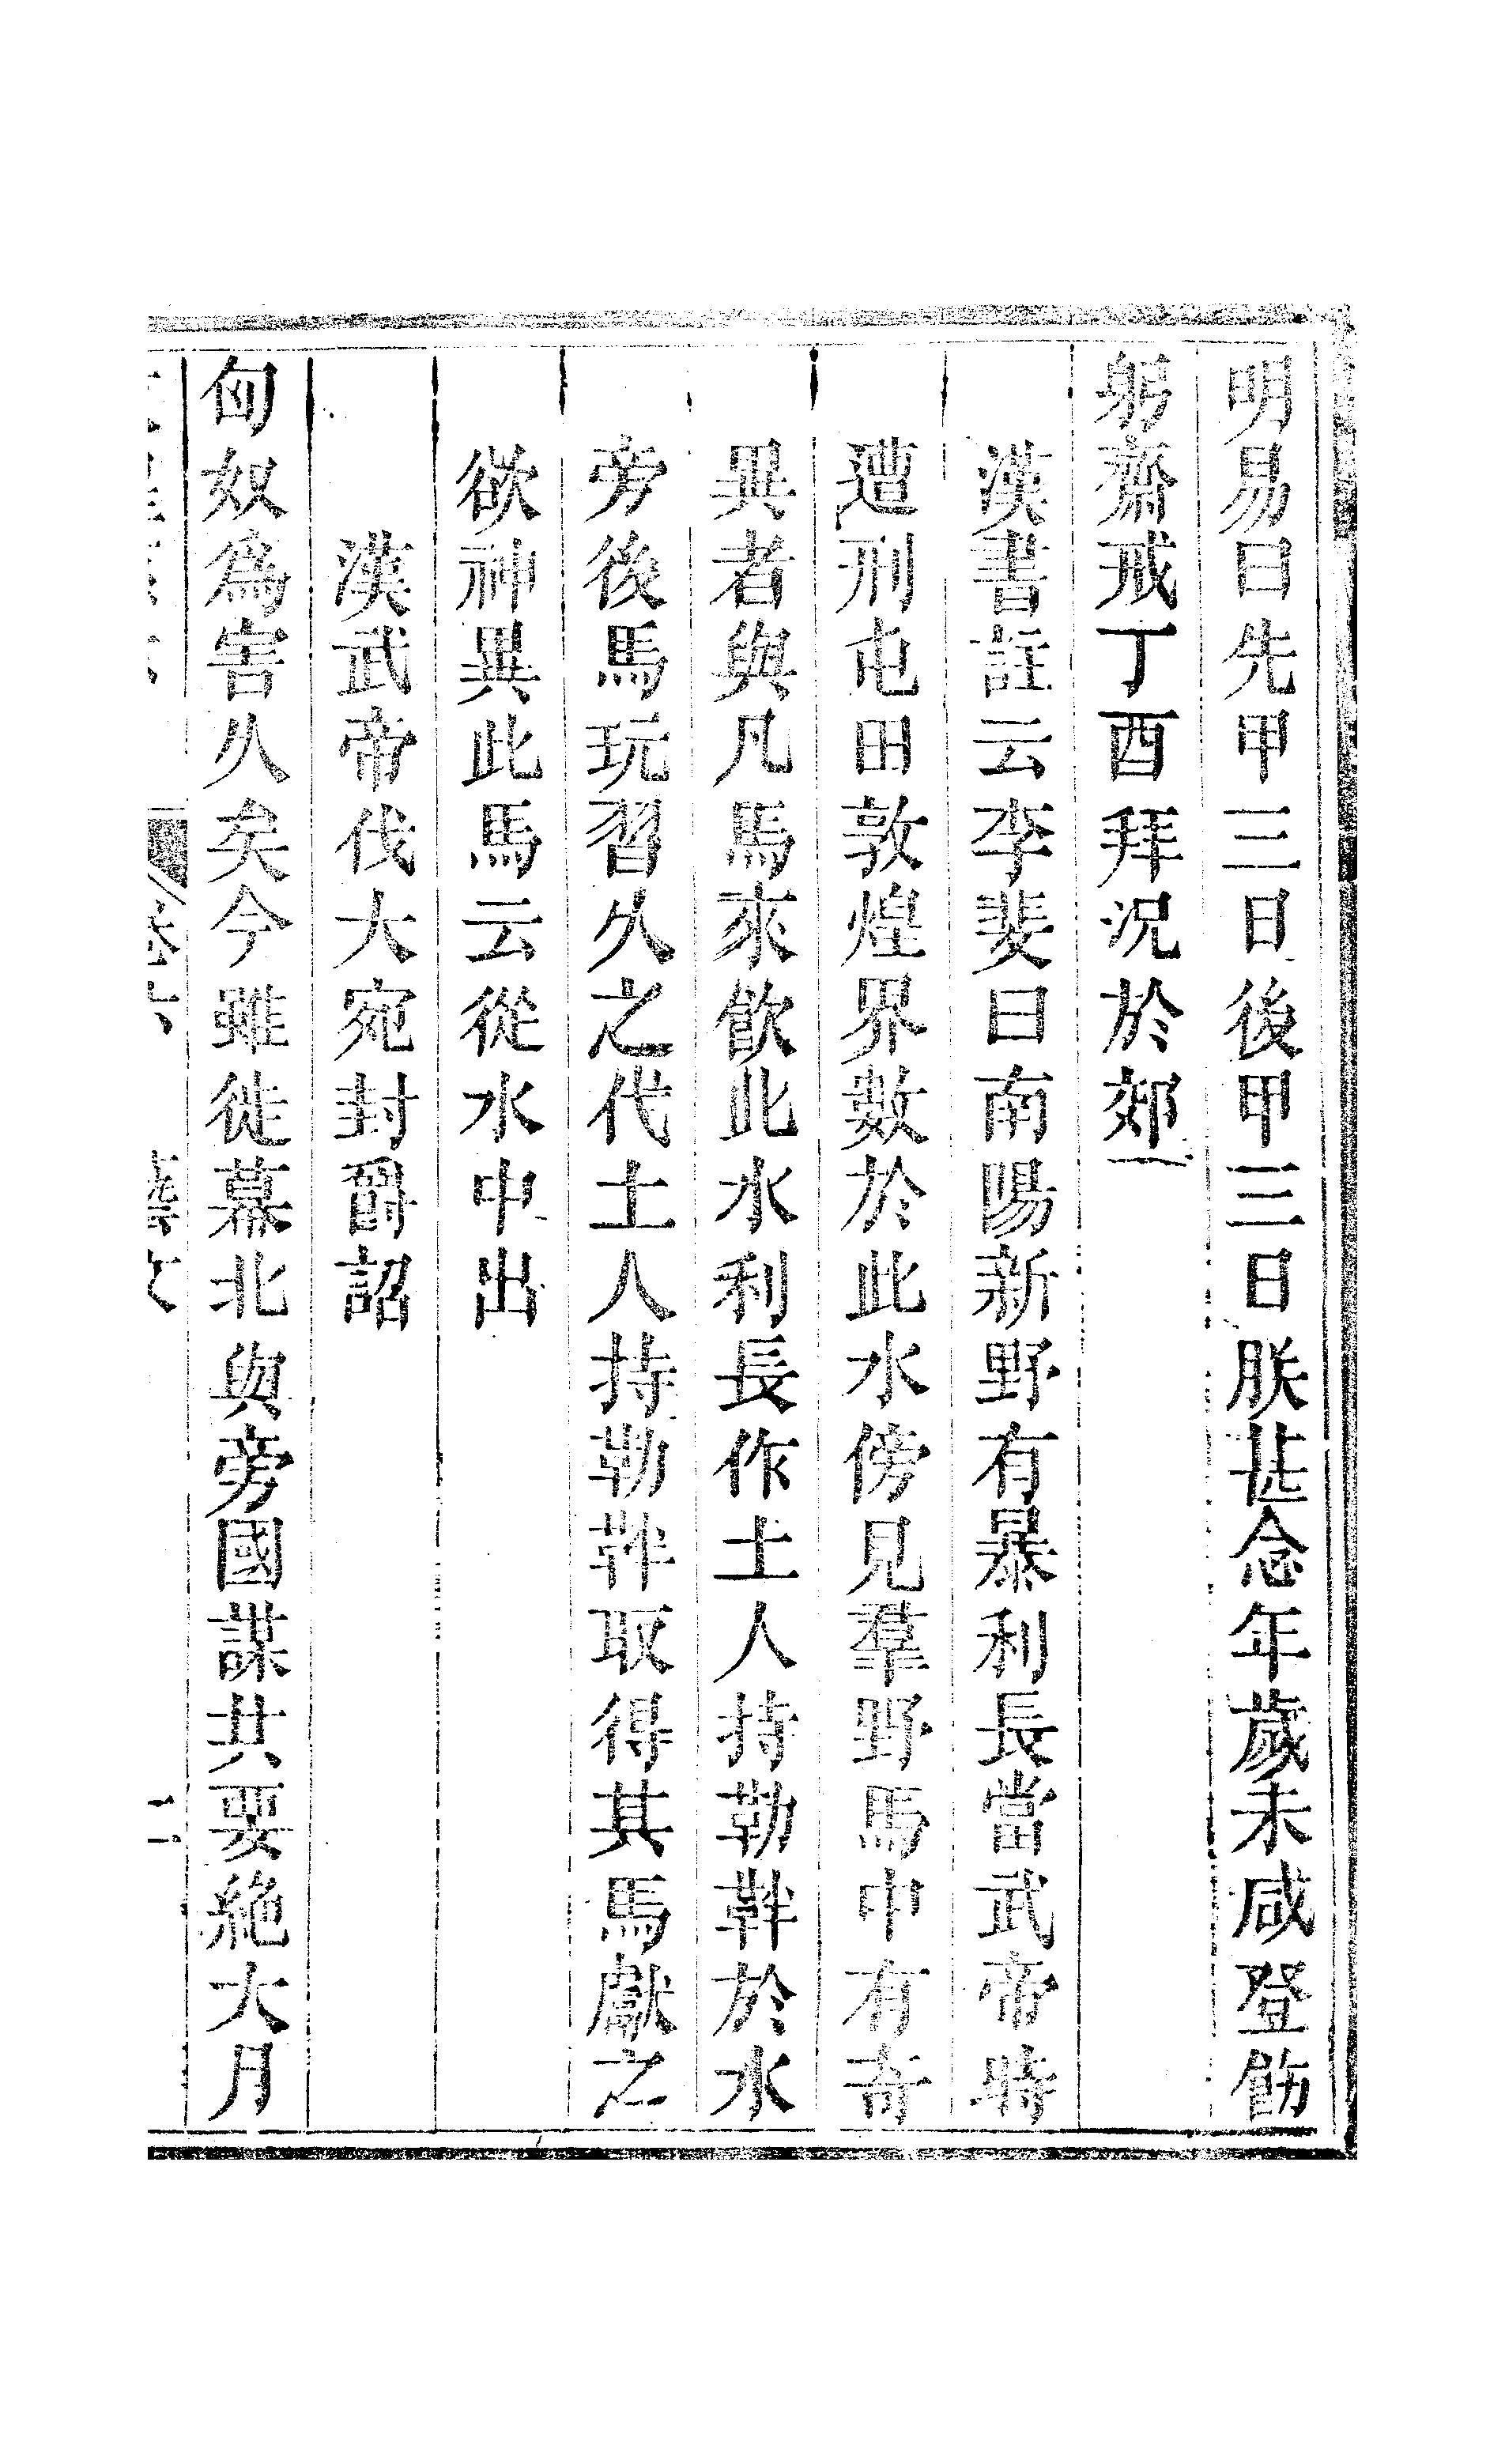 明易曰先甲三日後甲三日朕甚念年歲未咸登飭
躬齋戒丁酉拜況於郊
漢書註云李斐曰南陽新野有暴利長當武帝時
遭刑屯田敦煌界數於此水傍見羣野馬中有奇
異者與凡馬來飲此水利長作土人持勒靽於水
旁後馬玩習久之代土人持勒靽取得其馬獻之
欲神異此馬云從水中出
漢武帝伐大宛封爵詔
匈奴爲害久矣今雖徙幕北與旁國謀共要絶大月